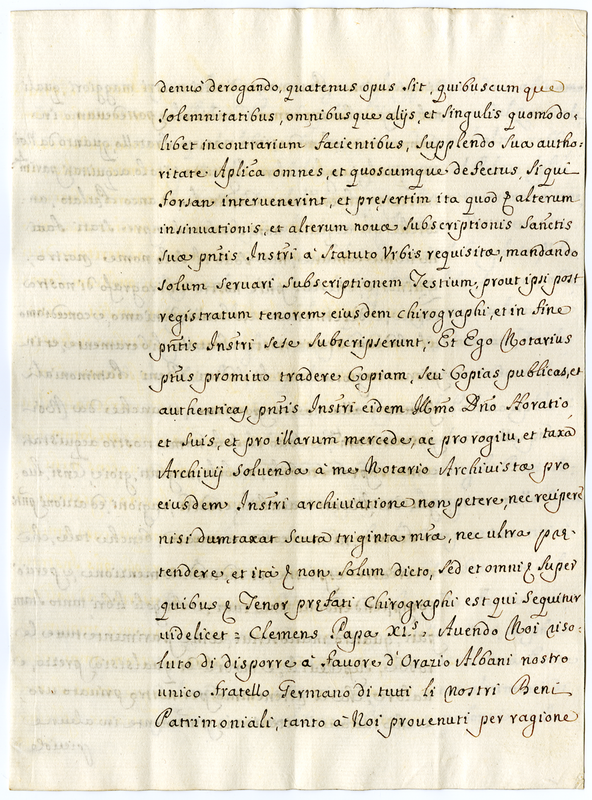 denuò derogando, quatenus opus sit, quibuscumque
solemnitatibus, omnibusque alijs, et singulis quomodo-
libet incontrarium facientibus, supplendo sua autho-
ritate Aplica omnes, et quoscumque defectus, si qui
forsan intervenerint, et pręsertim ita quod ꝑ alterum
insinuationis, et alterum novæ subscriptionis Sanctis
suæ pñtis Instri à Statuto Urbis requisitæ, mandando
solum servari subscriptionem Testium, prout ipsi post
registratum tenorem eiusdem chirographi, et in fine
pñtis Instri sese subscripserunt; Et Ego Notarius
ptus promitto tradere Copiam, seu Copias publicas, et
authenticas pñtis Instri eidem Illmo Dño Horatio
et suis, et pro illarum mercede, ac pro rogitu, et taxa
Archivij solvenda à me Notario Archivistæ pro
eiusdem Instri archiviatione non petere, nec recipere
nisi dumtaxat scuta triginta mtæ, nec ultra præ-
tendere, et ità ꝑ non solum dicto, sed et omni ꝑ super
quibus ꝑ Tenor pręfati Chirographi est qui sequitur
videlicet = Clemens Papa XI.s Avendo Noi riso-
luto di disporre à favore d'Orazio Albani nostro
unico fratello Germano di tutti li nostri Beni
Patrimoniali, tanto à Noi provenuti per ragione